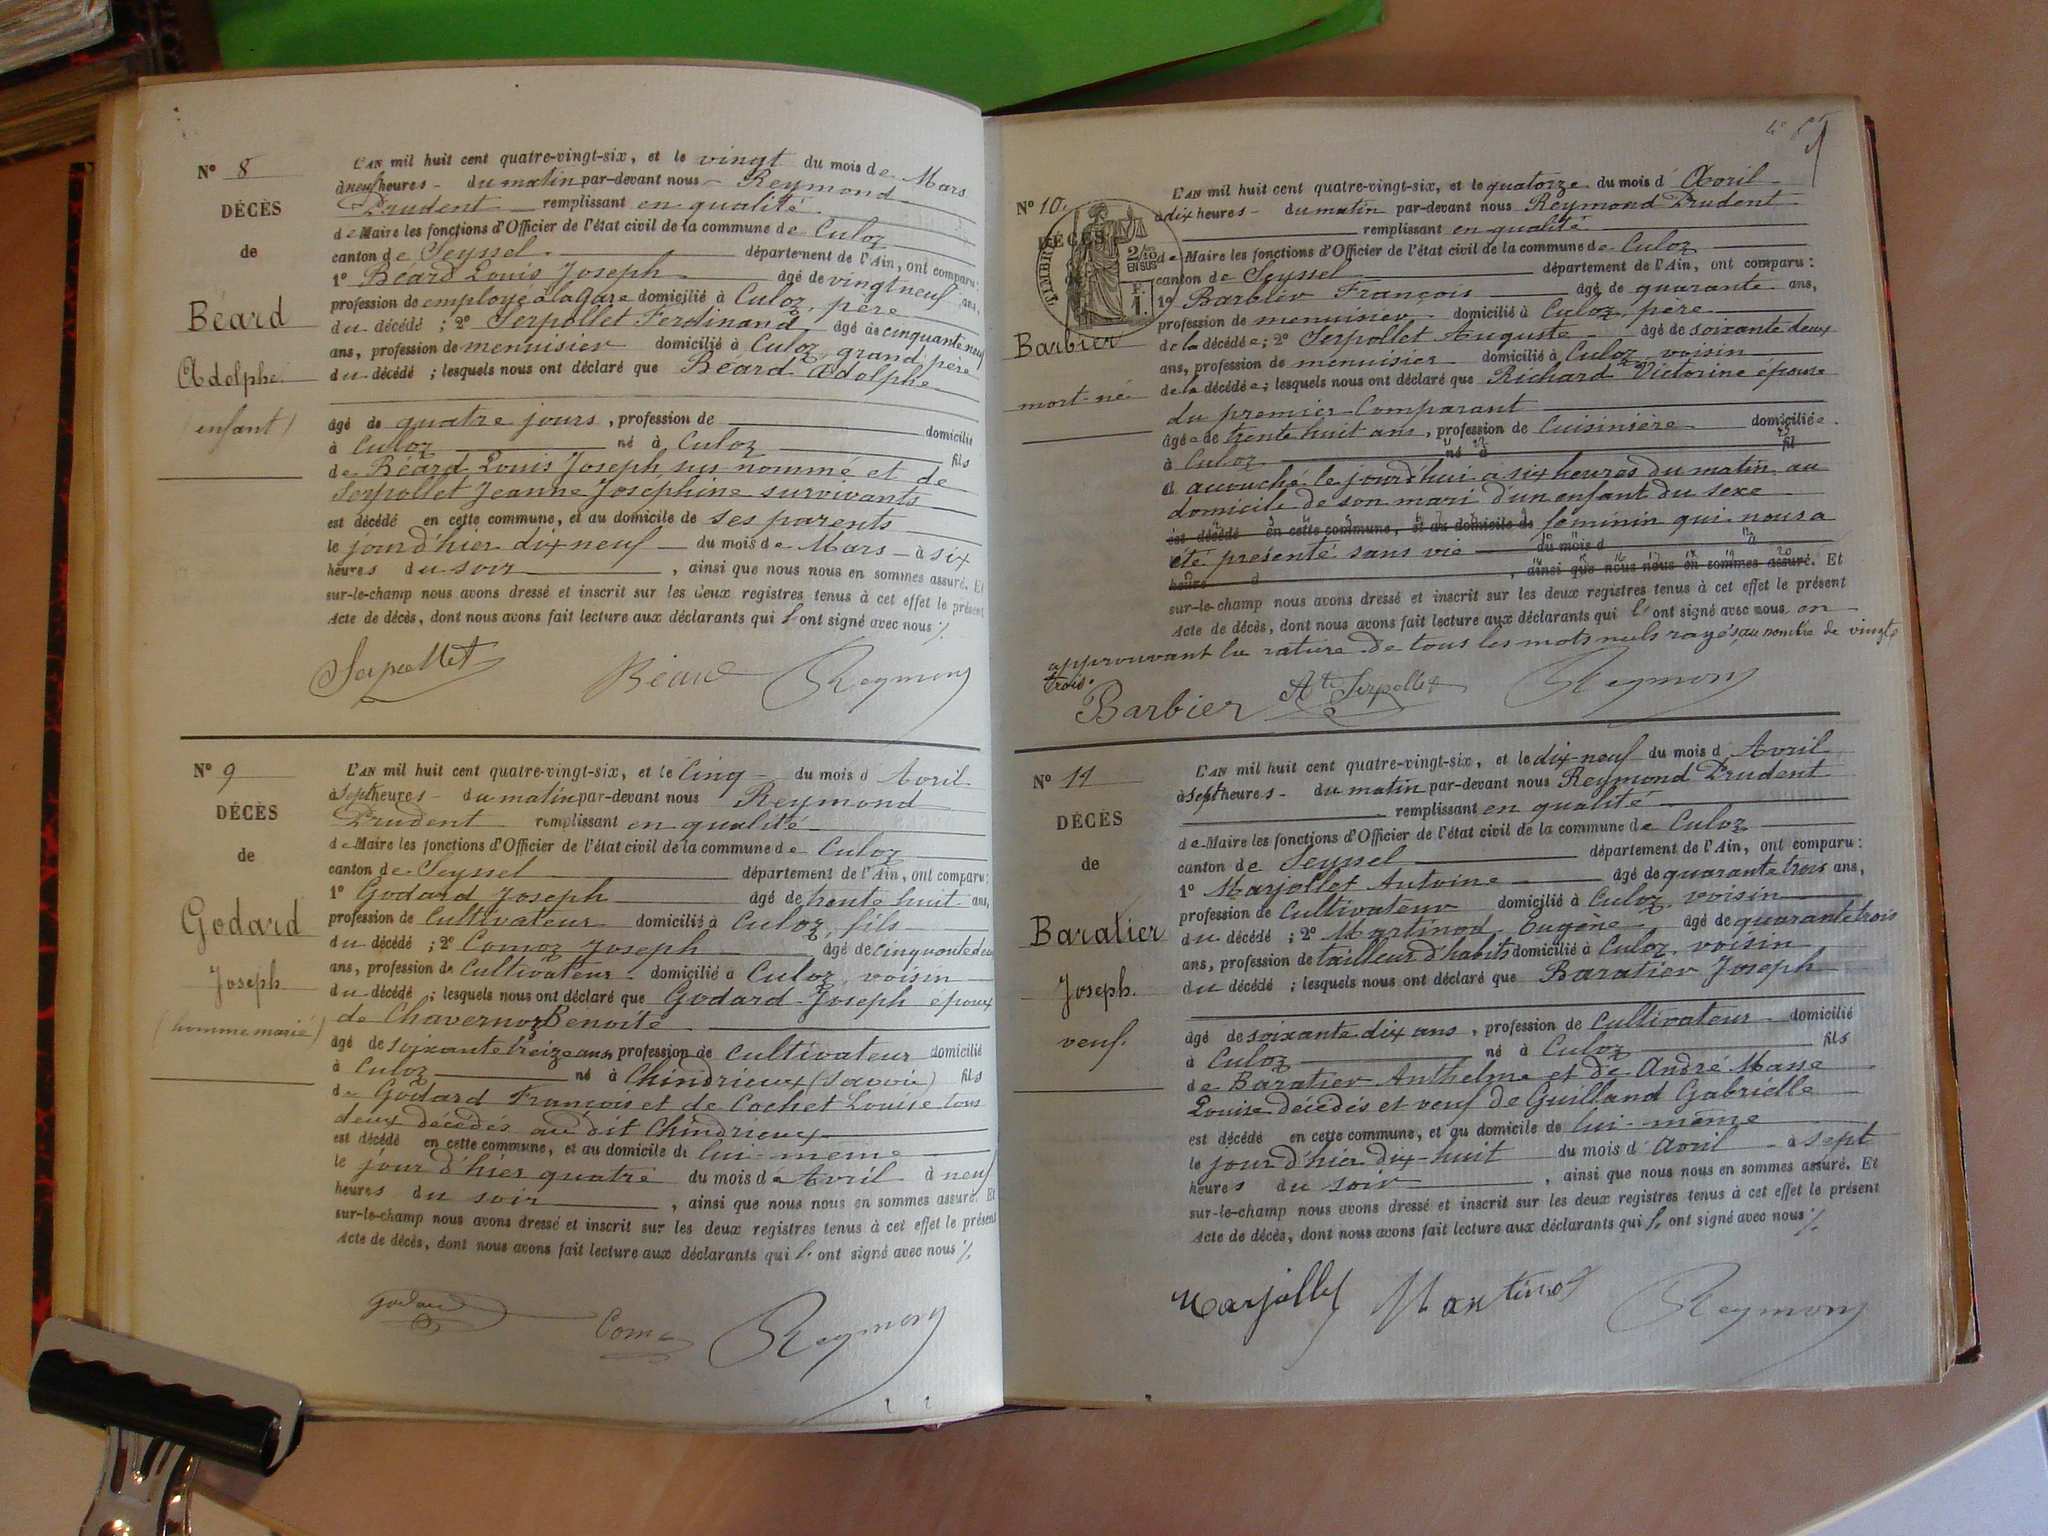 N° 8
DÉCÈS
de
Béard
Adolphe
(enfant)
L'AN mil huit cent quatre-vingt-six, et le vingt du mois de Mars
à neuf heures du matin par-devant nous Reymond
Prudent remplissant en qualité
de Maire les fonctions d'Officier de l'état civil de la commune de Culoz
canton de Seyssel département de l'Ain, ont comparu :
1° Béard Louis Joseph âgé de vingt neuf ans,
profession de employé à la Gare domicilié à Culoz, père
du décédé ; 2° Serpollet Ferdinand âgé de cinquante neuf
ans, profession de menuisier domicilié à Culoz, grand père
du décédé ; lesquels nous ont déclaré que Béard Adolphe
âgé de quatre jours, profession de domicilié
à Culoz né à Culoz fils
de Béard Louis Joseph sus nommé et de
Serpollet Jeanne Josephine survivants
est décédé en cette commune, et au domicile de ses parents
le jour d'hier dix neuf du mois de Mars à six
heures du soir, ainsi que nous nous en sommes assuré. Et
sur-le-champ nous avons dressé et inscrit sur les deux registres tenus à cet effet le présent
Acte de décès, dont nous avons fait lecture aux déclarants qui l'ont signé avec nous
Serpollet Béard Reymond
N° 9
DÉCÈS
de
Godard
Joseph
(homme marié)
L'AN mil huit cent quatre-vingt-six, et le Cinq du mois d Avril
à sept heures du matin par-devant nous Reymond
Prudent remplissant en qualité
de Maire les fonctions d'Officier de l'état civil de la commune de Culoz
canton de Seyssel département de l'Ain, ont comparu :
1° Godard Joseph âgé de trente huit ans,
profession de Cultivateur domicilié à Culoz, fils
du décédé ; 2° Comoz Joseph âgé de cinquante deux
ans, profession de Cultivateur domicilié à Culoz, voisin
du décédé ; lesquels nous ont déclaré que Godard Joseph époux
de Chavernoz Benoite
âgé de soixante treize ans profession de cultivateur domicilié
à Culoz né à Chindrieux (Savoie) fils
de Godard François et de Cochet Louise tous
deux décédés au dit Chindrieux
est décédé en cette commune, et au domicile de lui-même
le jour d'hier quatre du mois de Avril à neuf
heures du soir, ainsi que nous nous en sommes assuré. Et
sur-le-champ nous avons dressé et inscrit sur les deux registres tenus à cet effet le présent
Acte de décès, dont nous avons fait lecture aux déclarants qui l'ont signé avec nous
Godard Reymond
N° 10
DÉCÈS
TIMBRE
2/10 EN SUS
Barbier
mort-né
L'AN mil huit cent quatre-vingt-six, et le quatorze du mois d' Avril
à dix heures du matin par-devant nous Reymond Prudent
remplissant en qualité
de Maire les fonctions d'Officier de l'état civil de la commune de Culoz
canton de Seyssel département de l'Ain, ont comparu :
1° Barbier François âgé de quarante ans,
profession de menuisier domicilié à Culoz, père
de la décédée ; 2° Serpollet Auguste âgé de soixante deux
ans, profession de menuisier domicilié à Culoz voisin
de la décédée ; lesquels nous ont déclaré que Richard Victorine épouse
du premier Comparant
âgée de trente huit ans, profession de Cuisinière domiciliée
à Culoz né à fil
a accouché le jourd'hui a six heures du matin au
domicile de son mari d'un enfant du sexe
est décédé en cette commune, et au domicile de féminin qui nous a
été présenté sans vie du mois d à
heure d , ainsi que nous nous en sommes assuré. Et
sur-le-champ nous avons dressé et inscrit sur les deux registres tenus à cet effet le présent
Acte de décès, dont nous avons fait lecture aux déclarants qui l'ont signé avec nous en
approuvant la rature de tous les mots nuls rayés au nombre de vingt
trois.
Barbier Ate Serpollet Reymond
N° 11
DÉCÈS
de
Baratier
Joseph
veuf.
L'AN mil huit cent quatre-vingt-six, et le dix-neuf du mois d Avril
à sept heures du matin par-devant nous Reymond Prudent
remplissant en qualité
de Maire les fonctions d'Officier de l'état civil de la commune de Culoz
canton de Seyssel département de l'Ain, ont comparu :
1° Marjollet Antoine âgé de quarante trois ans,
profession de Cultivateur domicilié à Culoz voisin
du décédé ; 2° Martinod Eugène âgé de quarante trois
ans, profession de tailleur d'habits domicilié à Culoz voisin
du décédé ; lesquels nous ont déclaré que Baratier Joseph
âgé de soixante dix ans, profession de Cultivateur domicilié
à Culoz né à Culoz fils
de Baratier Anthelme et de André Masse
Louise décédés et veuf de Guilland Gabrielle
est décédé en cette commune, et au domicile de lui-même
le jour d'hier dix-huit du mois d' Avril à sept
heures du soir, ainsi que nous nous en sommes assuré. Et
sur-le-champ nous avons dressé et inscrit sur les deux registres tenus à cet effet le présent
Acte de décès, dont nous avons fait lecture aux déclarants qui l'ont signé avec nous
Marjollet Martinod Reymond